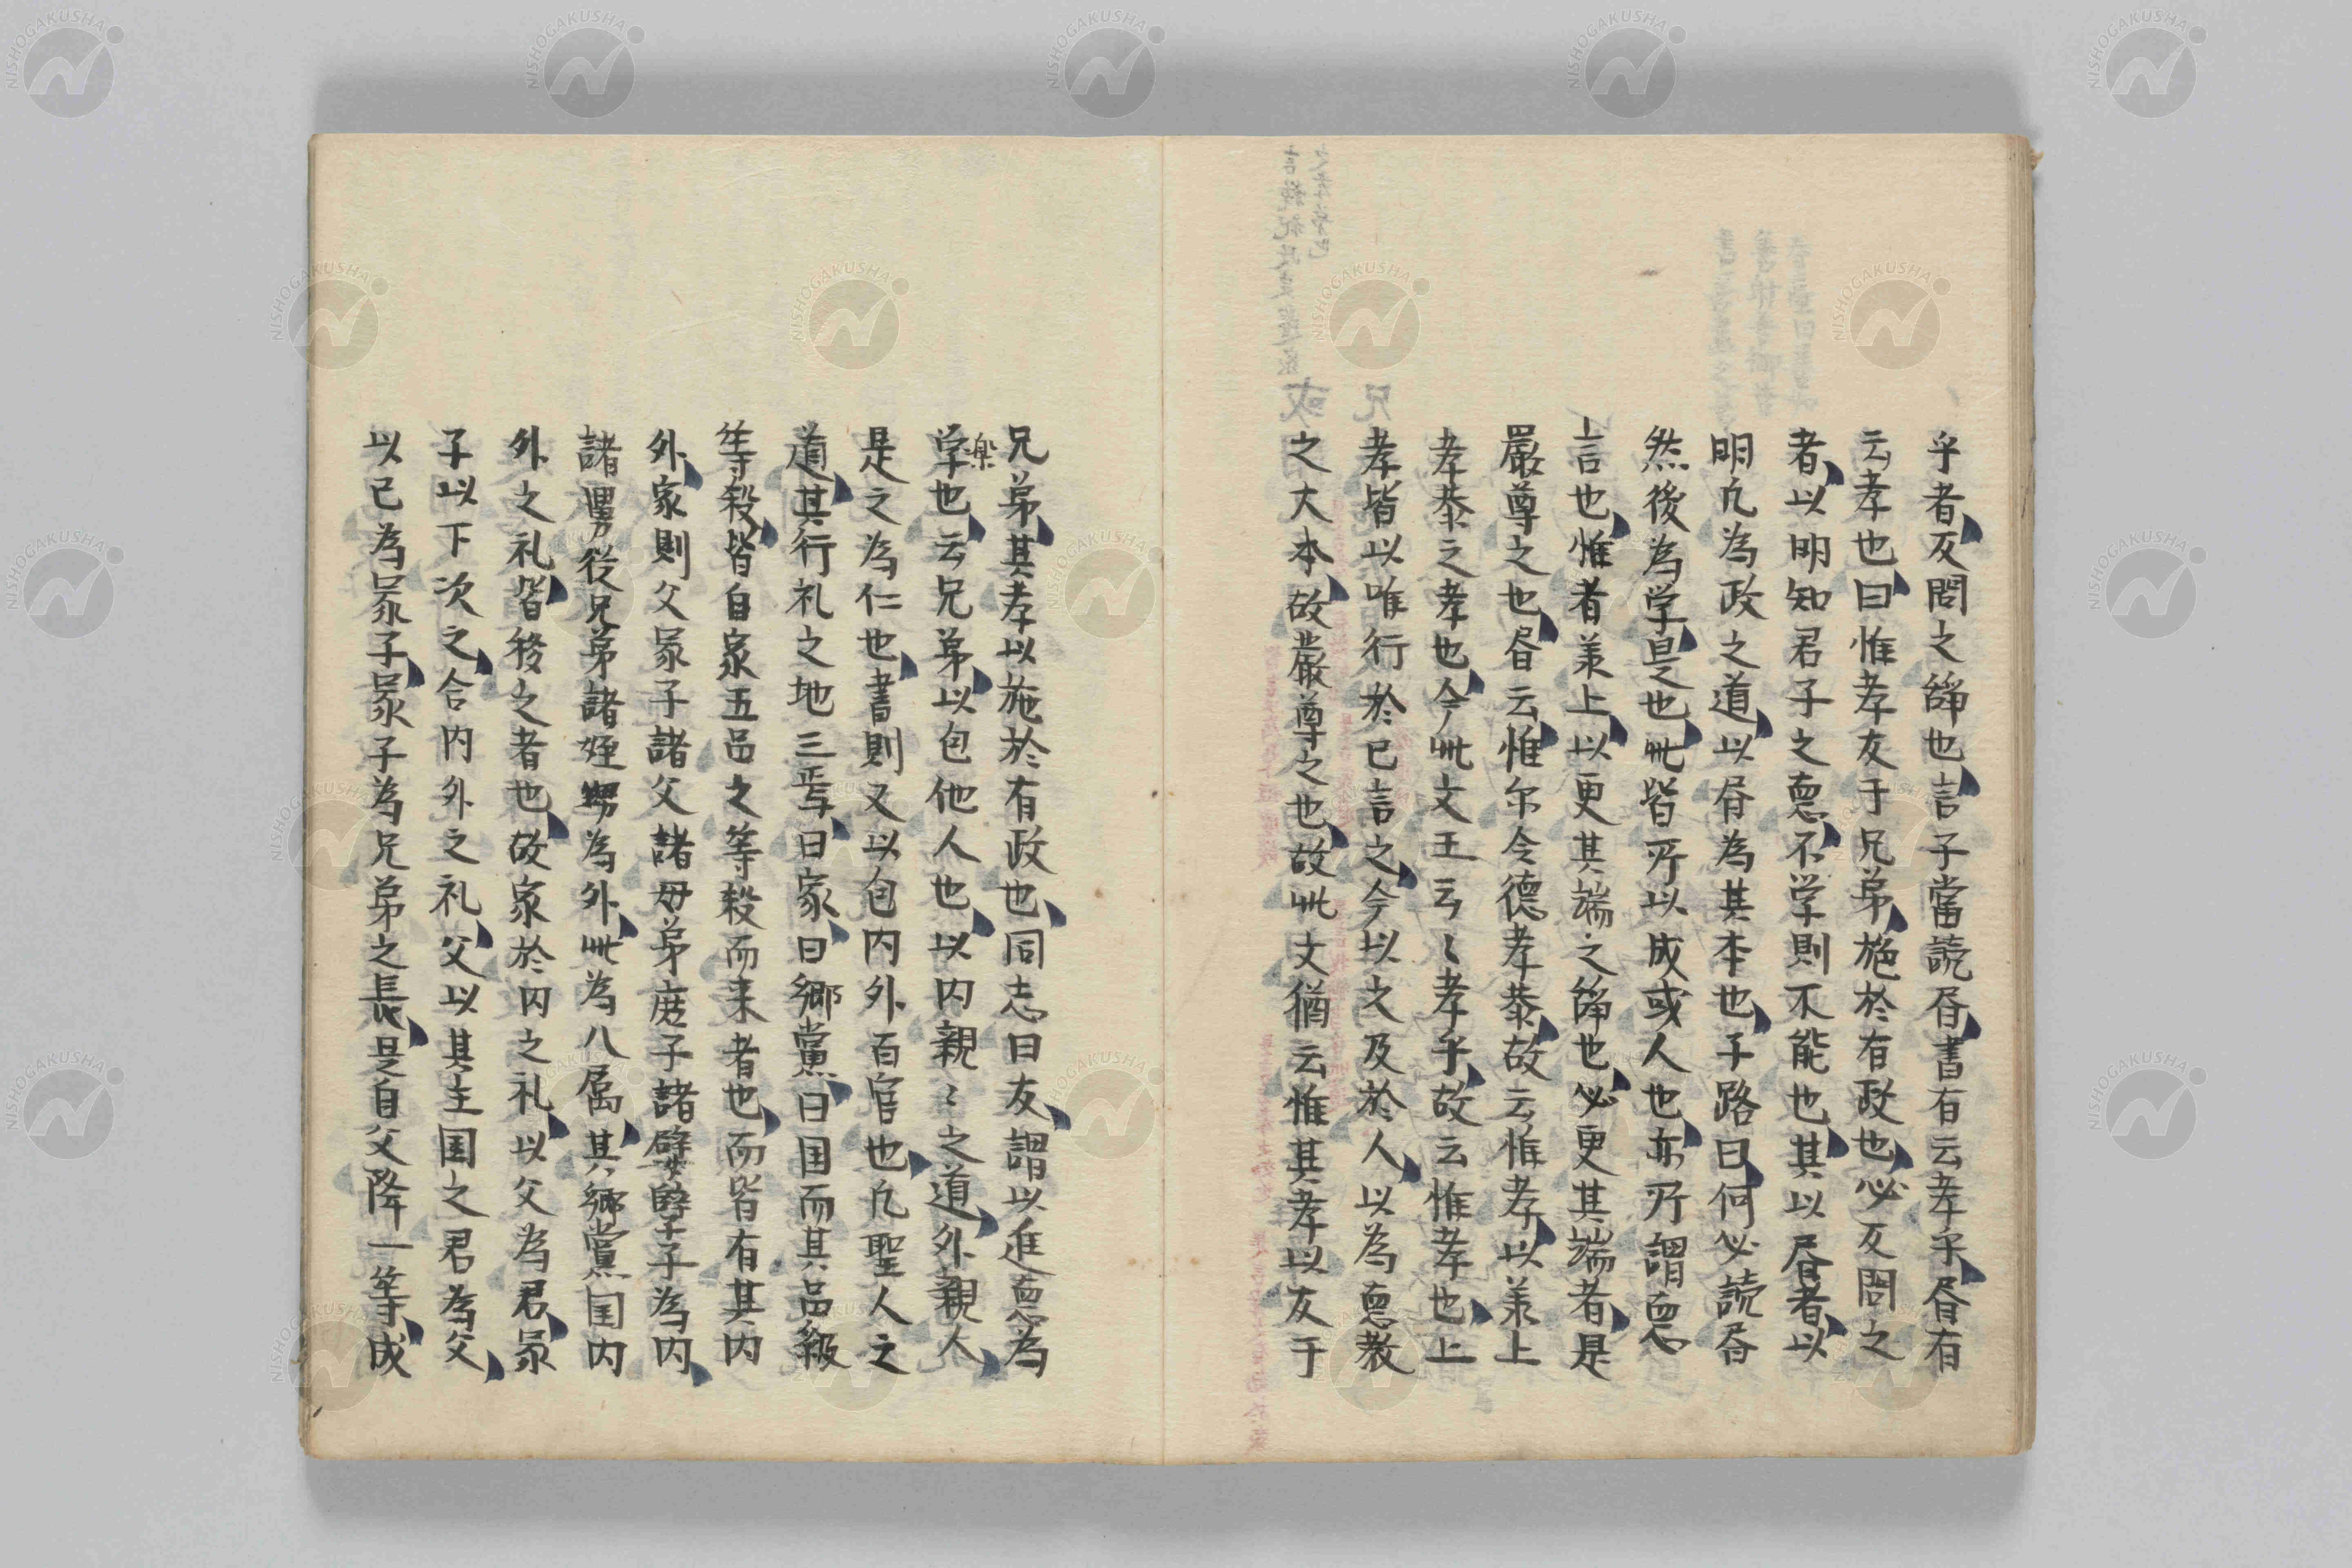 乎者反問之辞也言子當読昏書有云孝乎昏有
云孝也曰惟孝友于兄弟施於有政也必反問之
者以明知君子之悳不学則不能也其以昏者以
明凡為政之道以昏為其本也子路曰何必読昏
然後為学是也此皆所以成或人也亦所謂悳
言也惟者羕上以更其端之辞也必更其端者是
嚴尊之也昏云惟尓令徳孝恭故云惟孝以羕上
孝恭之孝也今此文王云〻孝乎故云惟孝也上
孝皆以唯行於已言之今以之及於人以為悳教
之大本故嚴尊之也故此文猶云惟其孝以友于
兄弟其孝以施於有政也同志曰友謂以進悳為
学也云兄弟以包他人也以内親〻之道外親人
楽
是之為仁也書則又以包内外百官也凡聖人之
道其行礼之地三焉曰家曰郷黨曰国而其品級
等殺皆自家五品之等殺而来者也而皆有其内
外家則父冡子諸父諸母弟庶子諸孼子為内
諸舅従兄弟諸姪甥為外此為八属其郷黨国内
外之礼皆移之者也故家於内之礼以父為君冡
子以下次之合内外之礼父以其主国之君為父
以已為冡子冡子為兄弟之長是自父降一等成
NISHOGAKUSHA